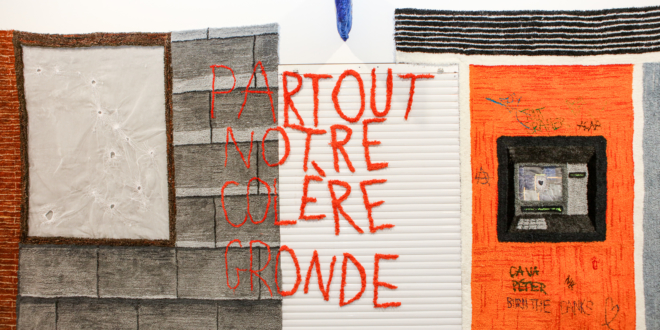 PARTOUT
NOTRE
COLÈRE
GRONDE
ÇA VA
PÉTER
BURN THE BANKS